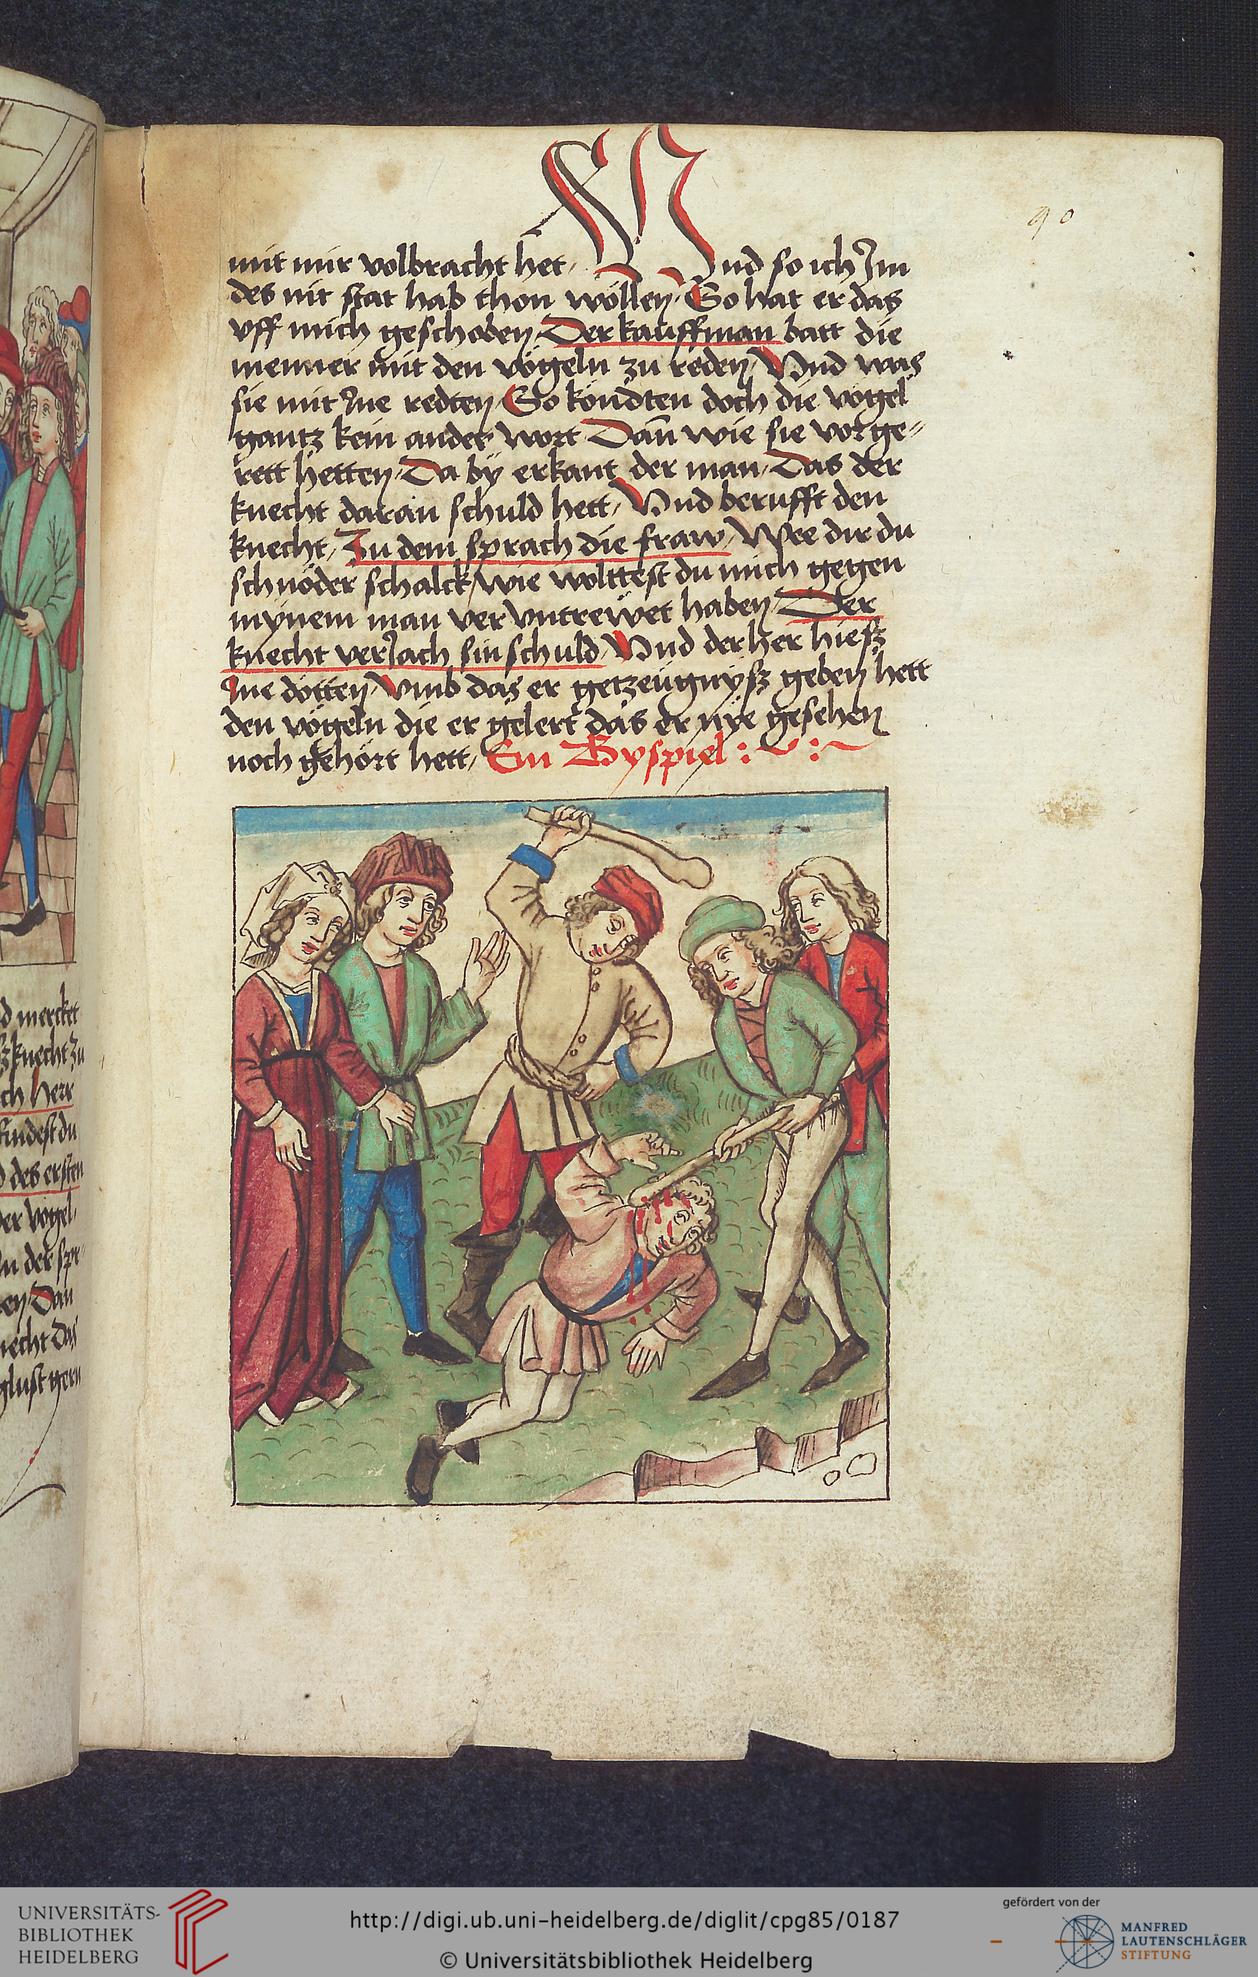 90
mit mir volbracht het, Vnd so ich Im
des nit stat hab thon wöllen, So hat er das
vff mich geschoben, Der kauffman batt die
menner mit den vögeln zu reden, Vnd was
sie mit Ine redten, So köndten doch die vögel
gantz kein ander wort, Dañ wie sie vor ge-
rett hetten, Da by erkant der man, Das der
knecht daran schuld hett, Vnd berufft den
knecht, Zu dem sprach die fraw, Wee dir du
schnöder schalck, wie wolttest du mich gegen
mynem man ver vntrewet haben, Der
knecht verJach sin schuld, Vnd der her hiesz
Ine dötten, vmb das er getzeügnysz geben hett
den vögeln die er gelert das er nye gesehen
noch gehört hett, Ein Byspiel : ~ : ~
d mercket
knecht zu
ch herr
findest du
des ersten
er vögel,
n der spr
en, Dan
necht das
glust gern
UNIVERSITÄTS-
BIBLIOTHEK
HEIDELBERG
http://digi.ub.uni-heidelberg.de/diglit/cpg85/0187
© Universitätsbibliothek Heidelberg
gefördert von der
MANFRED
LAUTENSCHLÄGER
STIFTUNG